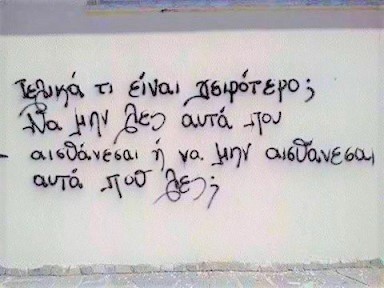 Τελικά τι είναι χειρότερο;
Να μην λες αυτά που
αισθάνεσαι ή να μην αισθάνεσαι
αυτά που λες;